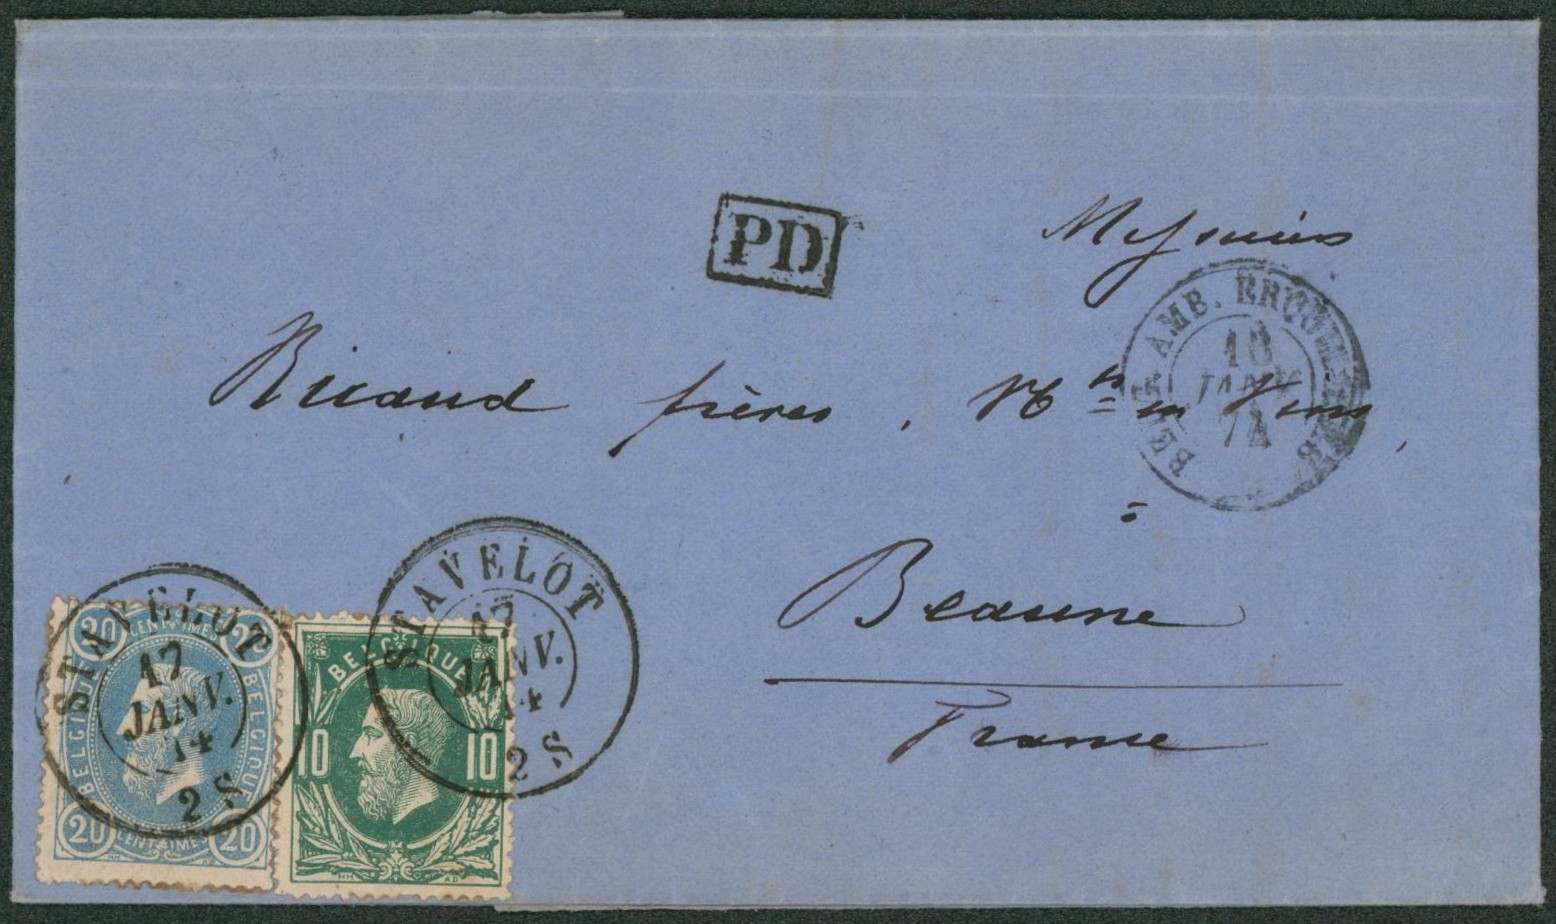 PD
Messieurs
BELG. AMB. ERQUELINES
18
JANV.
74
Ricaud frères, Mds en Vins,
à
Beaune
France
STAVELOT
17
JANV.
14
2 S
STAVELOT
17
JANV.
14
2 S
20 CENTIMES 20
BELGIQUE
BELGIQUE
20 CENTIMES 20
BELGIQUE
10 10